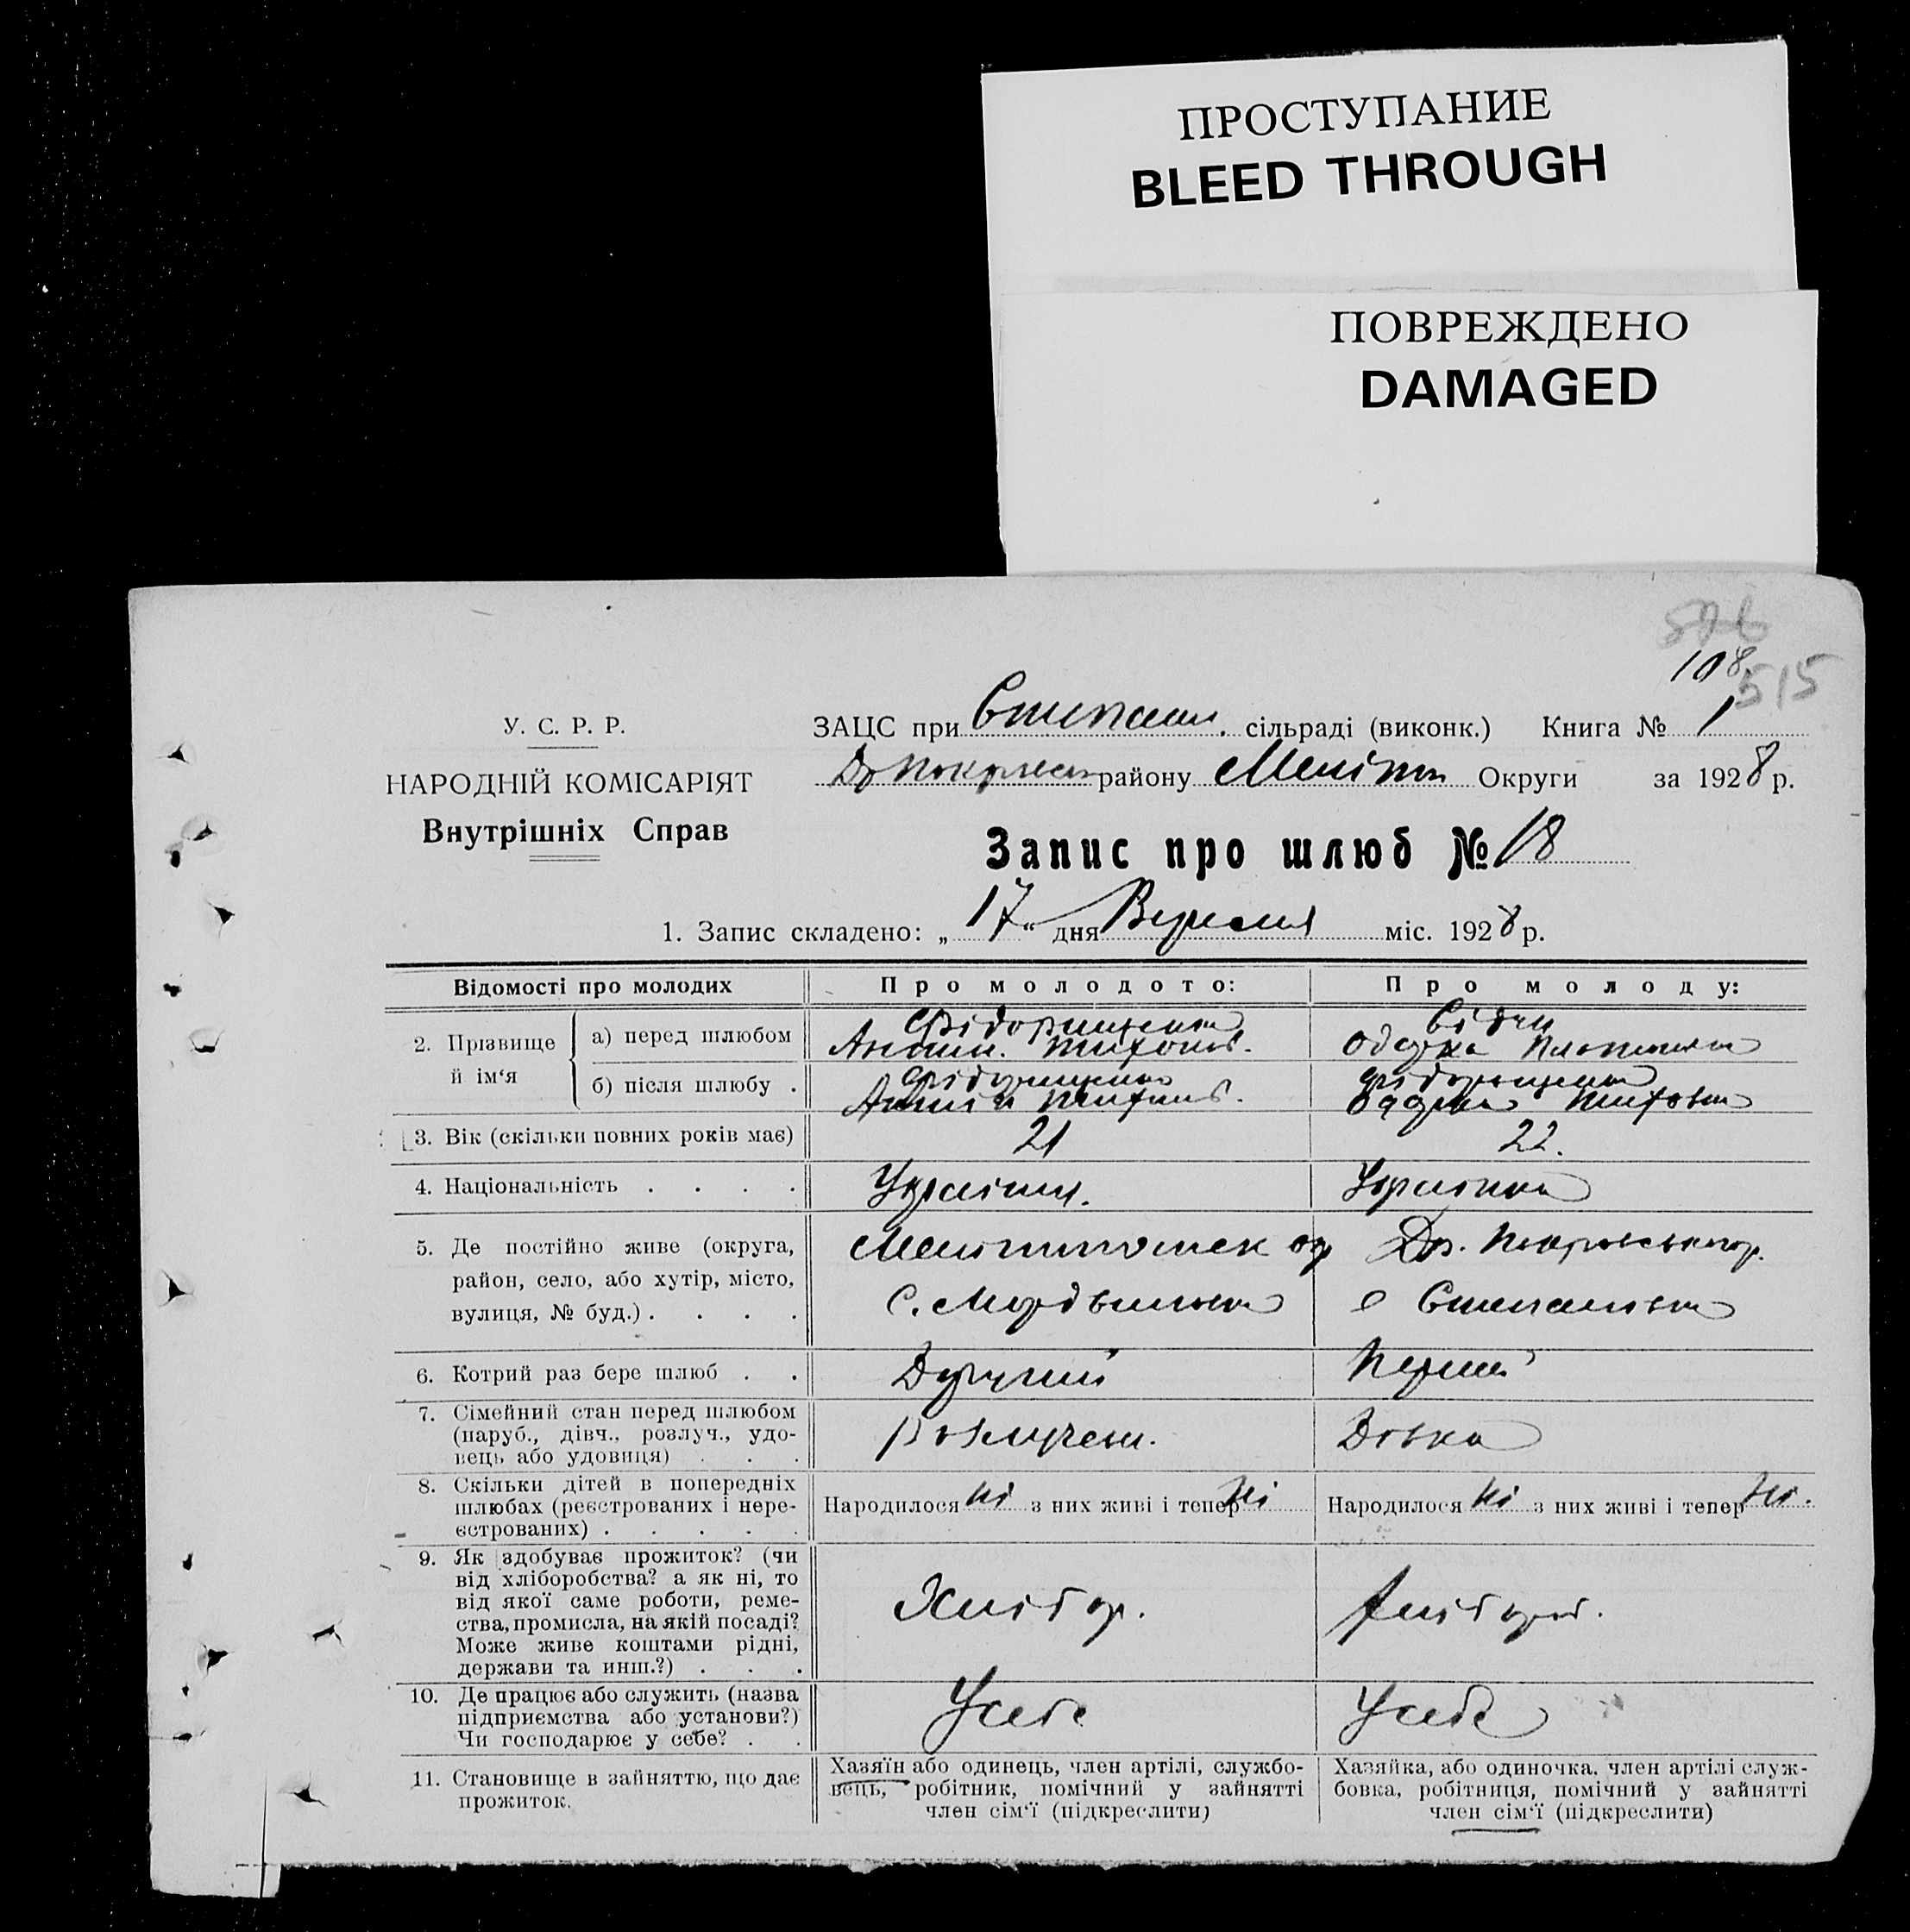 ПРОСТУПАНИЕ
BLEED THROUGH
ПОВРЕЖДЕНО
DAMAGED
108.
515
У. С. Р. Р.
НАРОДНІЙ КОМІСАРІЯТ
Внутрішніх Справ
ЗАЦС при Степанів. сільраді (виконк.) Книга № 1
району Меліт Округи за 1928 р.
Запис про шлюб № 18
1. Запис складено: „17“ дня Вересня міс. 1928 р.
Відомості про молодих Про молодого: Про молоду:
2. Прізвище й ім‘я
а) перед шлюбом
б) після шлюбу .
3. Вік (скільки повних років має) 21 22.
4. Національність . . . . Українц. Українка
5. Де постійно живе (округа, Др. Покровського р.
район, село, або хутір, місто, с. Мордвинівка с Степанівка
вулиця, № буд.) . . . .
6. Котрий раз бере шлюб . . Другий Перший
7. Сімейний стан перед шлюбом
(паруб., дівч., розлуч., удо- Розлучен. Дівка
вець або удовиця) . . .
8. Скільки дітей в попередніх
шлюбах (реєстрованих і нере- Народилося ні з них живі і тепер ні Народилося ні з них живі і тепер ні.
єстрованих) . . . . .
9. Як здобуває прожиток? (чи
від хліборобства? а як ні, то
від якої саме роботи, реме- Хлібор. хлібороб.
ства, промисла, на якій посаді?
Може живе коштами рідні,
держави та инш.?) . . .
10. Де працює або служить (назва
підприємства або установи?) У себе У себе
Чи господарює у себе? . .
11. Становище в зайняттю, що дає
прожиток.
Хазяїн або одинець, член артілі, службо-
вець, робітник, помічний у зайнятті
член сім‘ї (підкреслити)
Хазяйка, або одиночка. член артілі служ-
бовка, робітниця, помічний у зайнятті
член сім‘ї (підкреслити)